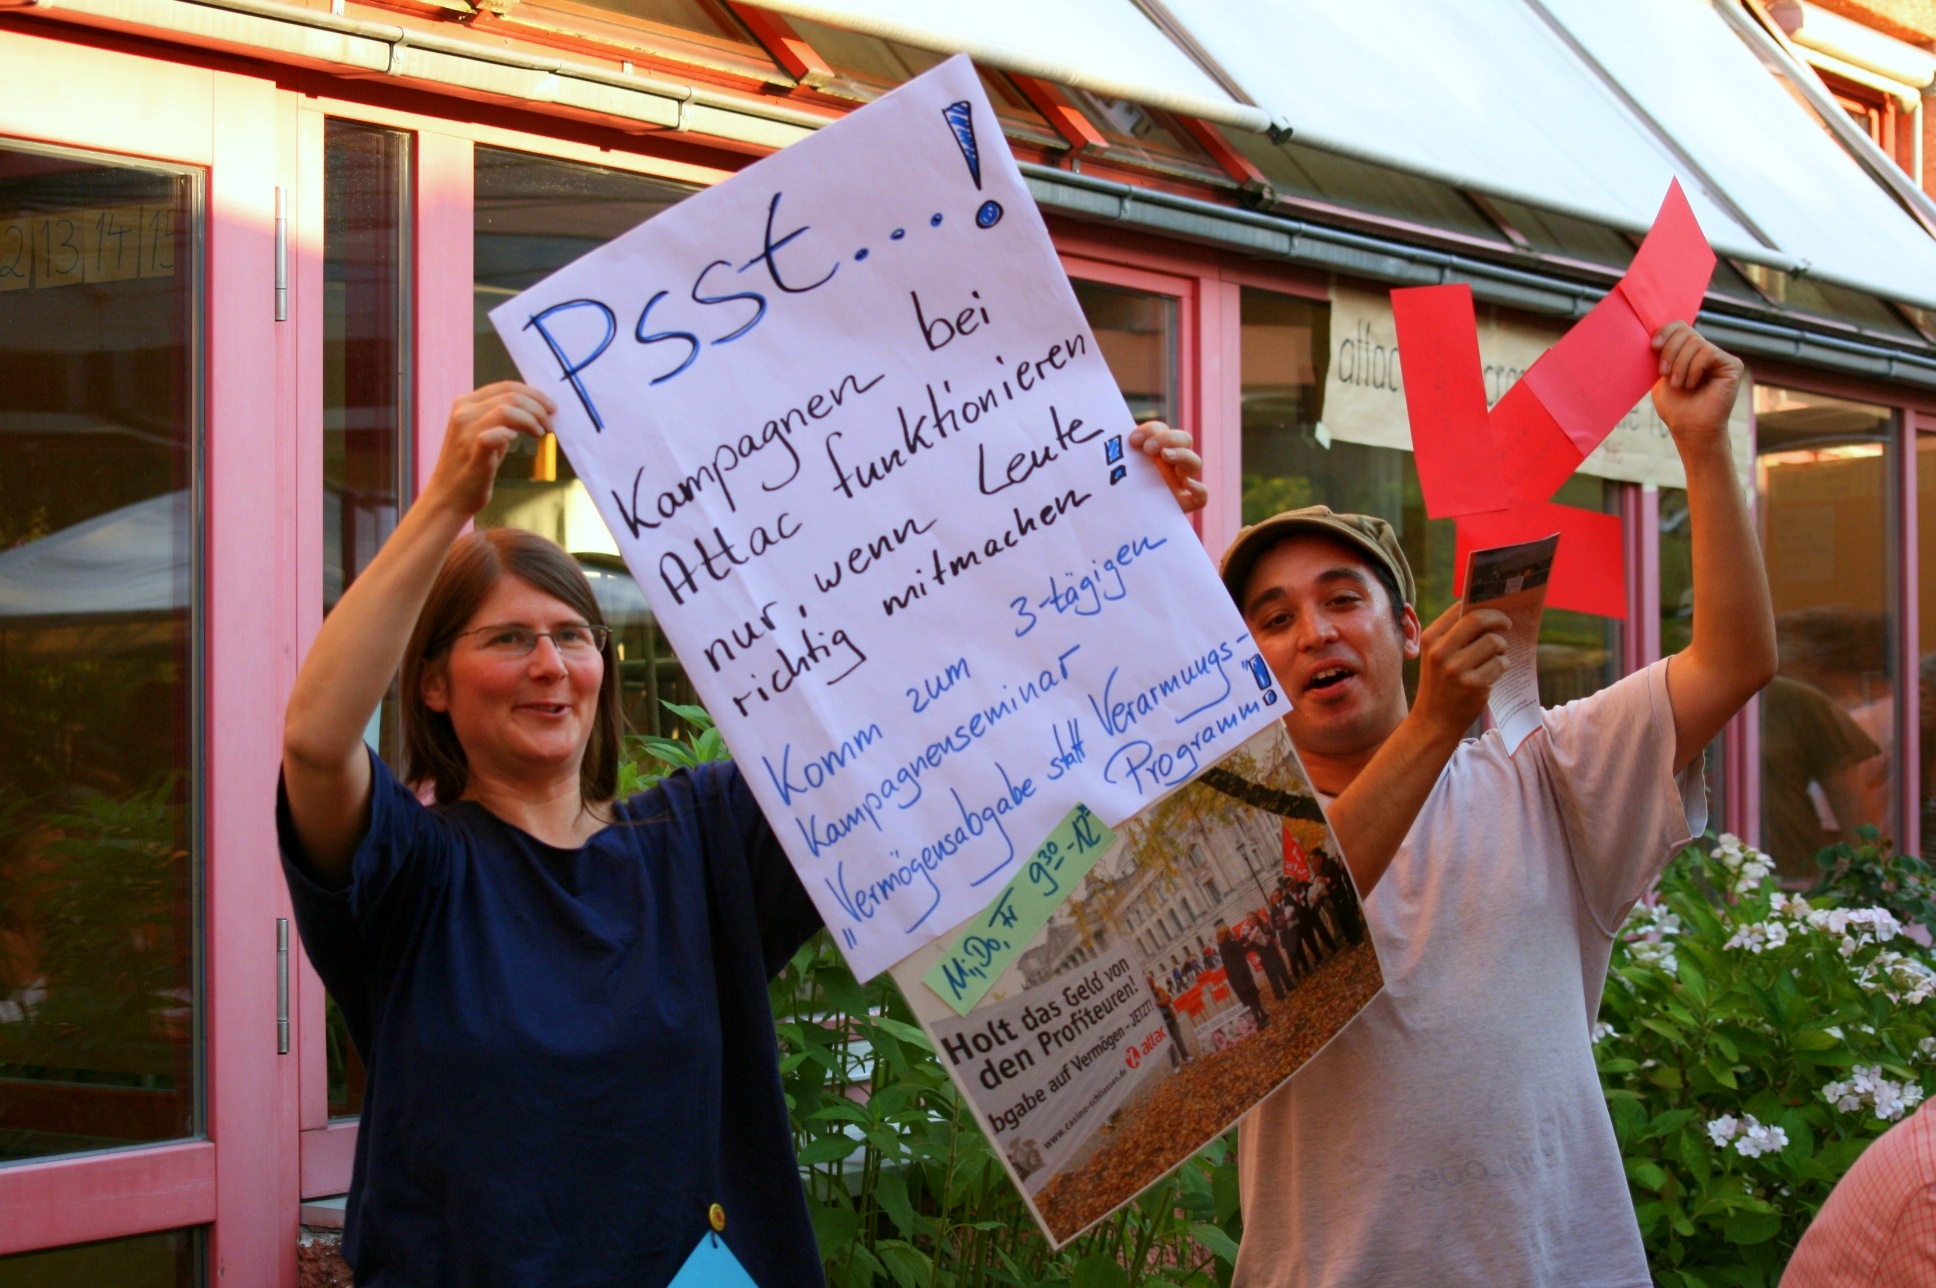 Psst....!
Kampagnen bei
Attac funktionieren
nur, wenn Leute
richtig mitmachen!
Komm zum 3-tägigen
Kampagnenseminar
"Vermögensabgabe statt Verarmungs-
Programm"!
Mi, Do, Fr 9³⁰-12⁰⁰
Holt das Geld von
den Profiteuren!
bgabe auf Vermögen - JETZT!
www.casino-schliessen.de attac
13 14 15
attac